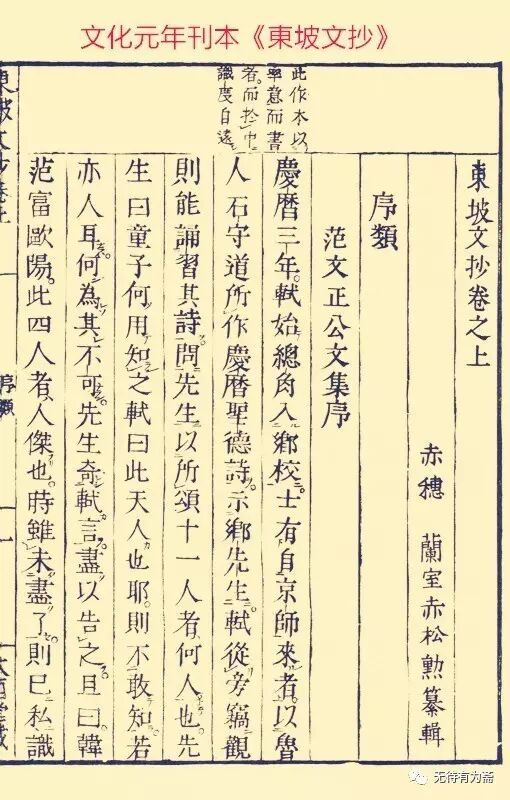 文化元年刊本《東坡文抄》
此作本以
率意而書
者而於中
識度自遠
東坡文抄卷之上
赤穗 蘭室赤松勲纂輯
序類
范文正公文集序
慶曆三年軾始總角入鄉校士有自京師來者以魯
人石守道所作慶曆聖德詩示鄉先生軾從旁竊觀
則能誦習其詩問先生以所頌十一人者何人也先
生曰童子何用知之軾曰此天人也耶則不敢知若
亦人耳何為其不可先生奇軾言盡以告之且曰韓
范富歐陽此四人者人傑也時雖未盡了則已私識
東坡文抄卷上
序類
一
无待有为斋